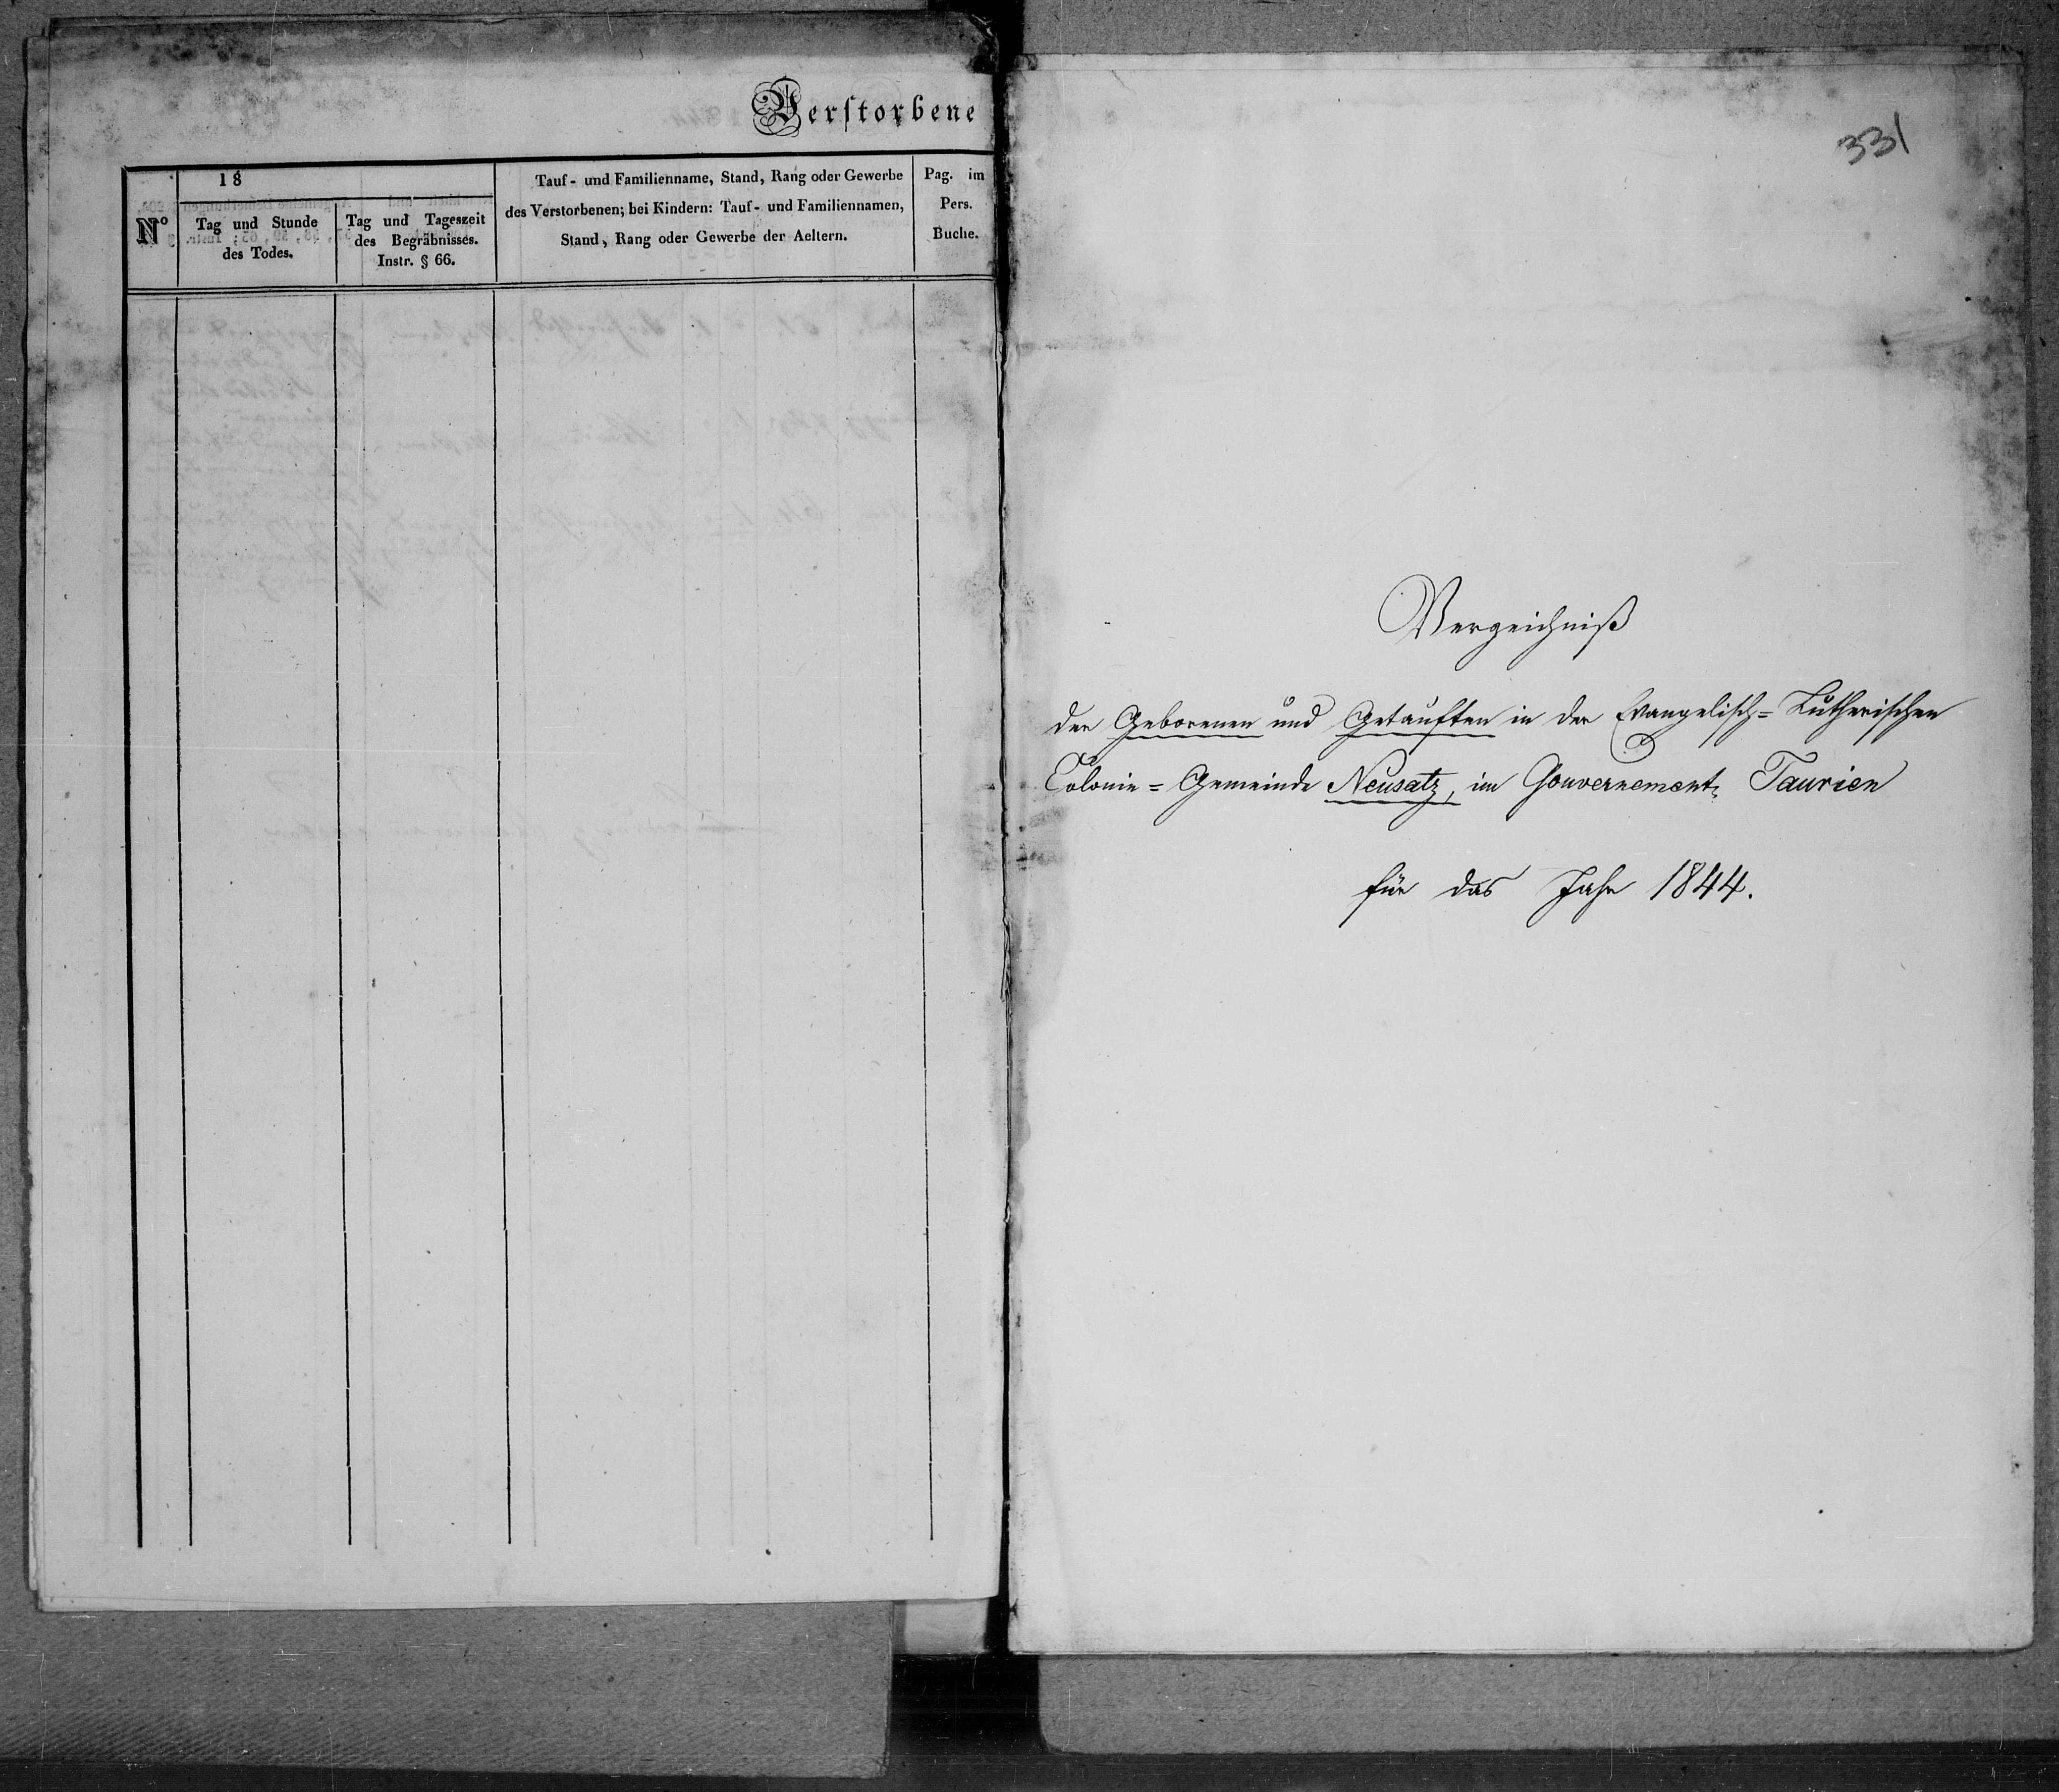 Verstorbene
N°
18
Tag und Stunde
des Todes.
Tag und Tageszeit
des Begräbnisses.
Instr. § 66.
Tauf- und Familienname, Stand, Rang oder Gewerbe
des Verstorbenen; bei Kindern: Tauf- und Familiennamen,
Stand, Rang oder Gewerbe der Aeltern.
Pag. im
Pers.
Buche.
331
Verzeichniß
der Geborenen und Getauften in der Evangelisch=Lutherischen
Colonie=Gemeinde Neusatz, im Gouvernement Taurien
für das Jahr 1844.